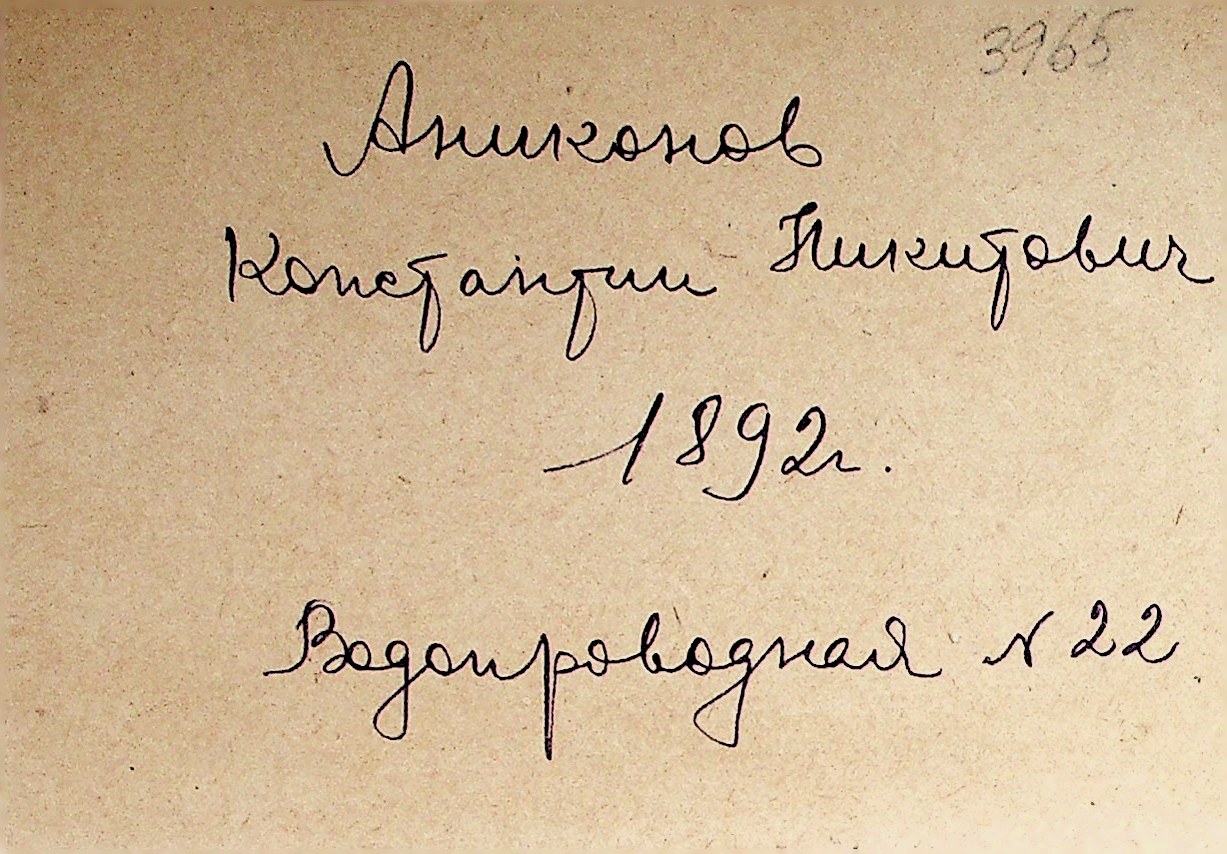 3965
Аниконов
Константин Никитович
1892г.
Водопроводная N 22